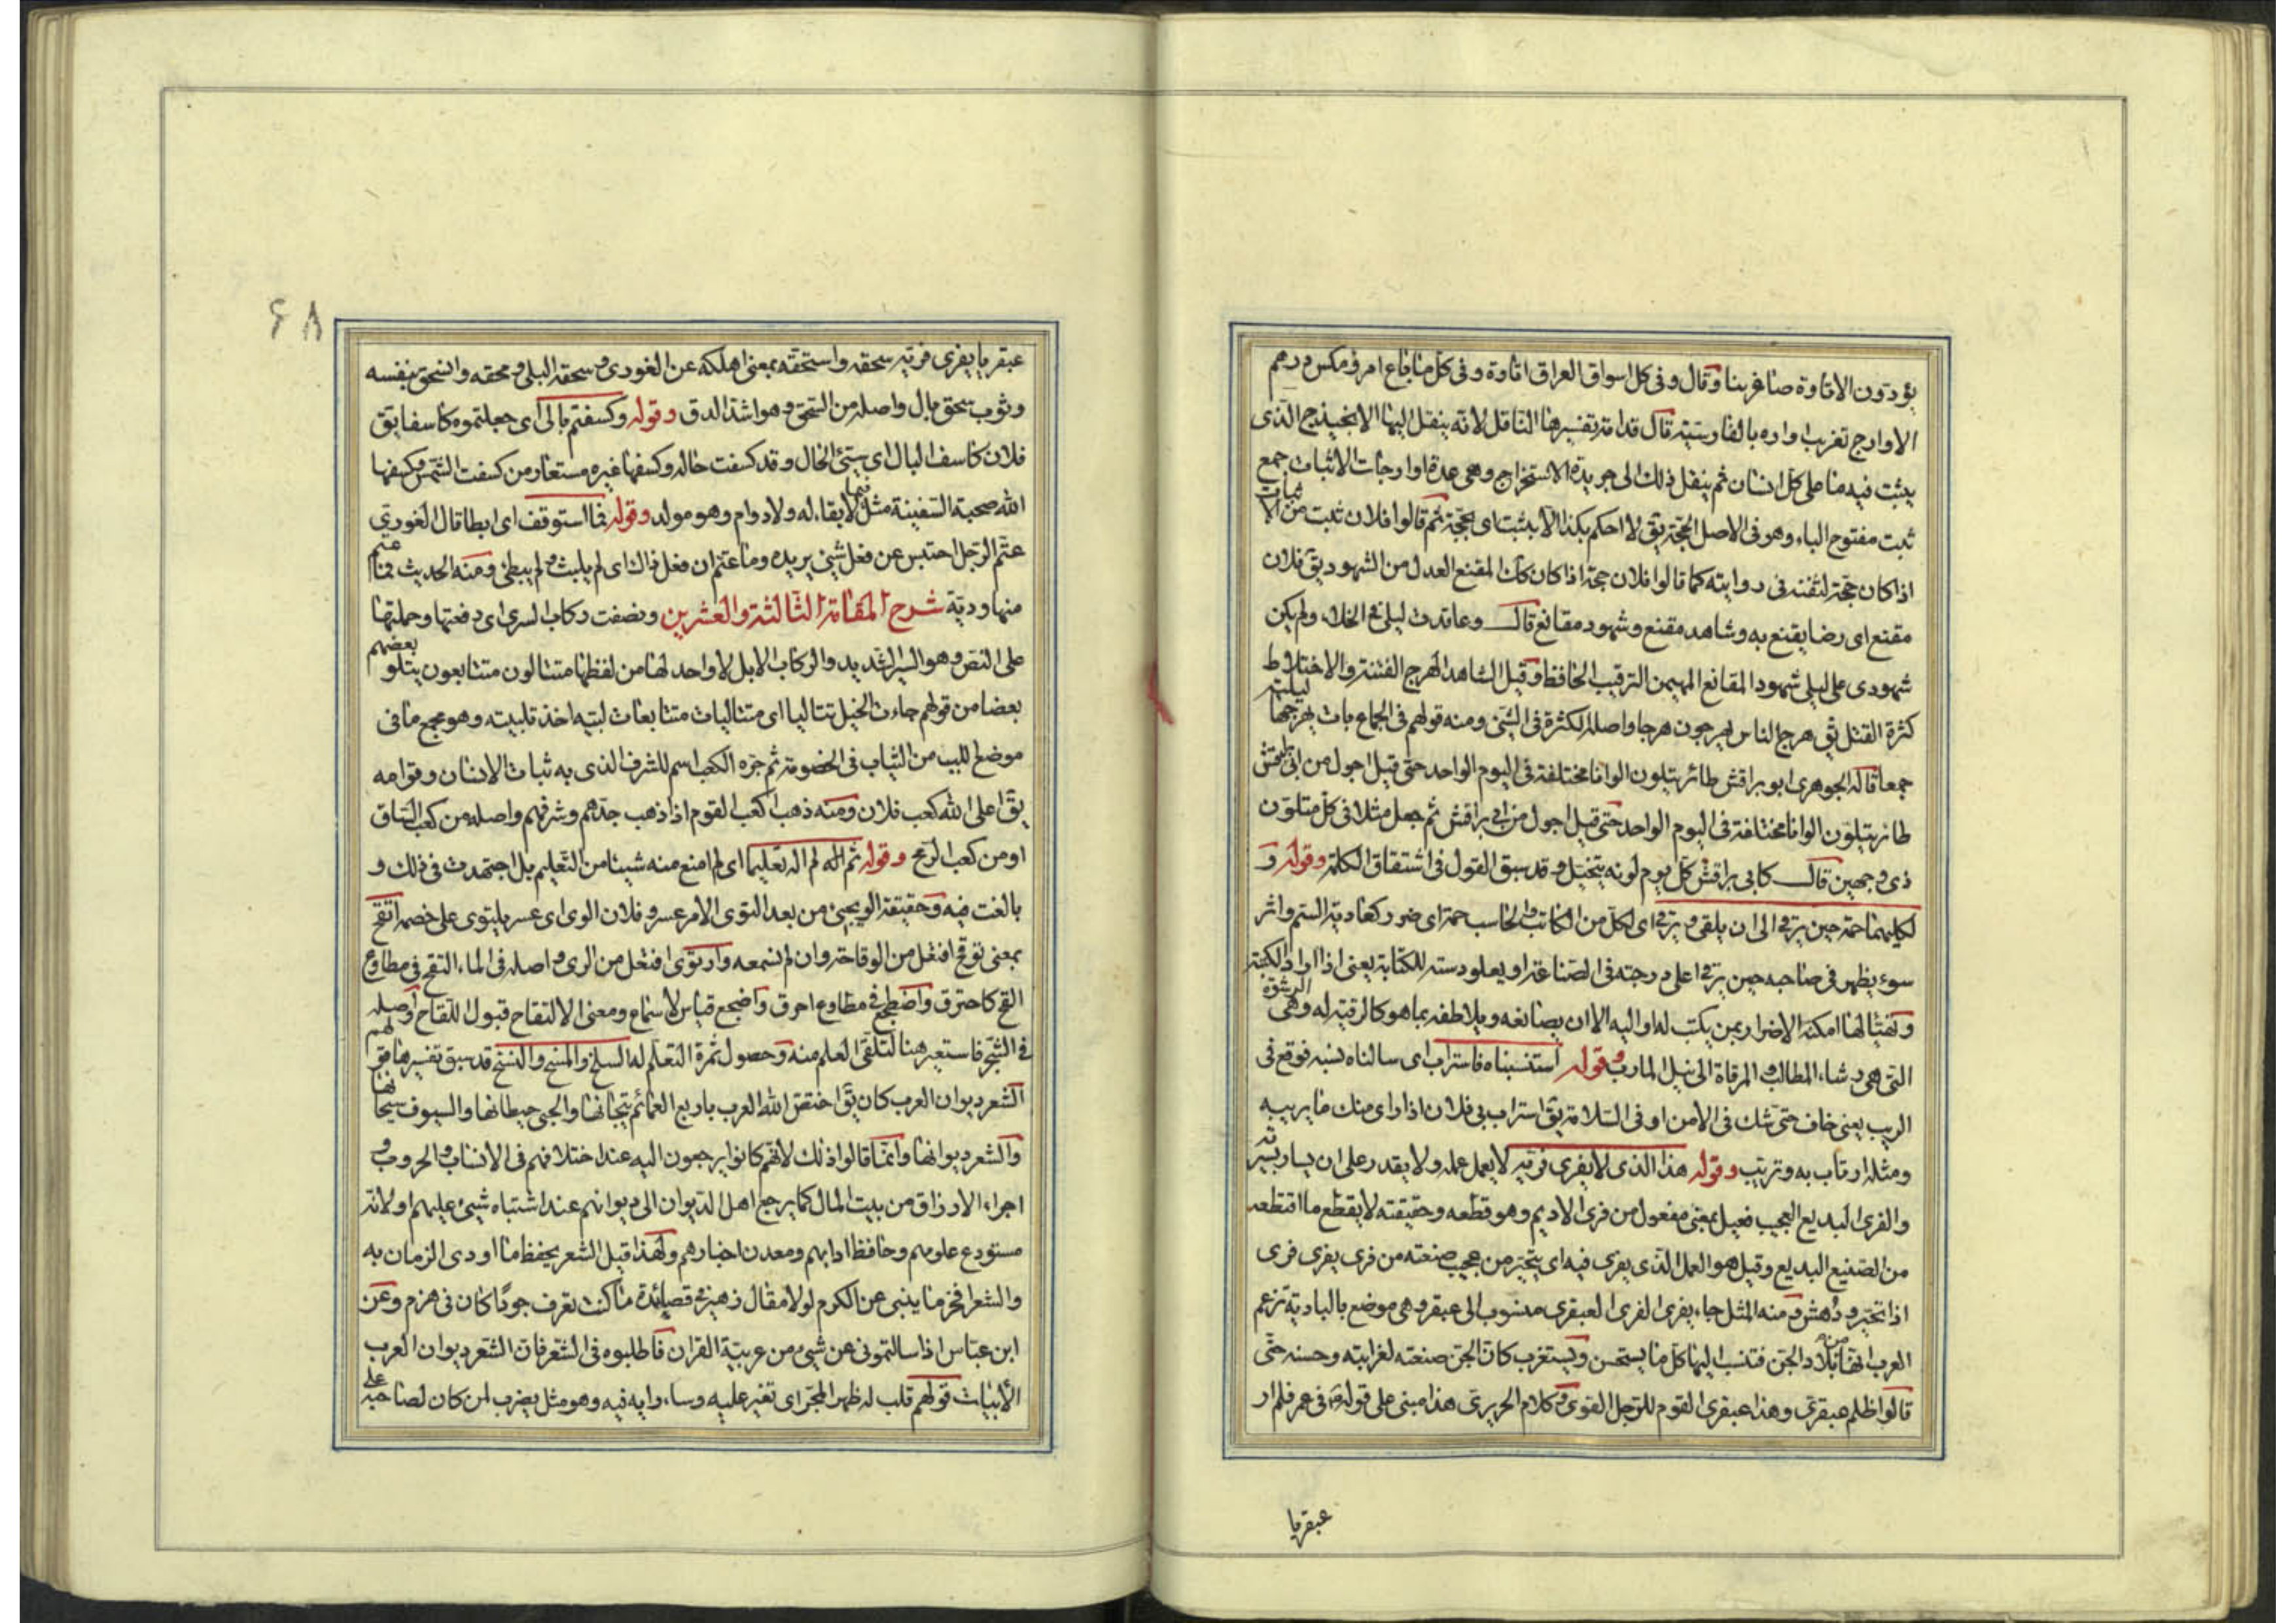 يؤدون الاتاوة صاغرينا وقال وفى كل اسواق العراق اتاوة وفى كل ما باع امرؤ مكس درهم
الاوارج تعريب اواره بالفارسية قال قدامة تفسيرها الناقل لانه ينقل اليها الانجيذج الذى
يثبت فيه ما على كل انسان ثم ينقل ذلك الى جريدة الاستخراج وهى عدة اوارجات الاثبات جمع
ثبت مفتوح الباء وهو فى الاصل الحجة يق لا احكم بكذا الا بثبت اى بحجة ثم قالوا فلان ثبت من الاثبات
اذا كان حجة لثقته فى روايته كما قالوا فلان حجة اذا كان كك المقنع العدل من الشهود يق فلان
مقنع اى رضا يقنع به وشاهد مقنع وشهود مقانع قال وعاقدت ليلى فى الخلاء ولم يكن
شهودى على ليلى شهود المقانع المهيمن الرقيب الحافظ وقيل الشاهد الهرج الفتنة والاختلاط
كثرة القتل يق هرج الناس يهرجون هرجا واصله الكثرة فى الشئ ومنه قولهم فى الجماع بات يهرجها ليلته
جمعا قاله الجوهرى ابو براقش طائر يتلون الوانا مختلفة فى اليوم الواحد حتى قيل احول من ابى براقش
طائر يتلون الوانا مختلفة فى اليوم الواحد حتى قيل احول من ابى براقش ثم جعل مثلا فى كل متلون
ذى وجهين قال كابى براقش كل يوم لونه يتخيل وقد سبق القول فى اشتقاق الكلمة وقوله و
لكليهما حمة حين يرقى الى ان يلقى ويرقى اى لكل من الكاتب والحاسب حمة اى ضرر كعادية السم واثر
سوء يظهر فى صاحبه حين يرقى اعلى درجته فى الصناعة او يعلو دسته للكتابة يعنى اذا اراد الكتبة
وتهيا لها امكنه الاضرار بمن يكتب له او اليه الا ان يصانعه ويلاطفه بما هو كالرقية له وهى الرشوة
التى هى رشاء المطالب والمرقاة الى نيل المارب وقوله استنسبناه فاستراب اى سالناه نسبه فوقع فى
الريب يعنى خاف حتى شك فى الامن او فى السلامة يق استراب بى فلان اذا راى منك ما يريبه
ومثله ارتاب به وتريب وقوله هذا الذى لا يفرى فريه لا يعمل عمله ولا يقدر على ان يسير بسيرته
والفرى البديع العجيب فعيل بمعنى مفعول من فرى الاديم وهو قطعه وحقيقته لا يقطع ما اقتطعه
من الصنيع البديع وقيل هو العمل الذى يفرى فيه اى يتحير من عجيب صنعته من فرى يفرى فرى
اذا تحير ودهش ومنه المثل جاء يفرى الفرى العبقرى منسوب الى عبقر وهى موضع بالبادية تزعم
العرب انها من بلاد الجن فتنسب اليها كل ما يستحسن ويستغرب كان الجن صنعته لغرابته وحسنه حتى
قالوا ظلم عبقرى وهذا عبقرى القوم للرجل القوى وكلام الحريرى هذا مبنى على قوله فى عمر فلم ار
عبقريا
٤٨
عبقريا يفرى فريه سحقه واستحقه بمعنى اهلكه عن الغورى وسحقه البلى ومحقه وانسحق بنفسه
وثوب سحق بال واصله من السحق وهو اشد الدق وقوله وكسفتم بالى اى جعلتموه كاسفا يق
فلان كاسف البال اى سيئ الحال وقد كسفت حاله وكسفها غيره مستعار من كسفت الشمس وكسفها
الله صحبة السفينة مثل فيما لا بقاء له ولا دوام وهو مولد وقوله فما استوقف اى ابطا قال الغورى
عتم الرجل احتبس عن فعل شئ يريده وما عتم ان فعل ذاك اى لم يلبث ولم يبطئ ومنه الحديث فما عتم
منها ودية شرح المقامة الثالثة والعشرين ونصفت ركاب السرى اى دفعتها وحملتها
على النص وهو السير الشديد والركاب الابل لا واحد لها من لفظها متتالون متتابعون يتلو بعضهم
بعضا من قولهم جاءت الخيل تتاليا اى متتاليات متتابعات لبيته اخذ تلبيبه وهو مجمع ما فى
موضع اللبب من الثياب فى الخصومة ثم جره الكعب اسم للشرف الذى به ثبات الانسان وقوامه
يق اعلى الله كعب فلان ومنه ذهب كعب القوم اذا ذهب جدهم وشرفهم واصله من كعب الساق
او من كعب الرمح وقوله ثم اله لم اله تعليما اى لم امنع منه شيئا من التعليم بل اجتهدت فى ذلك و
بالغت فيه وحقيقة الو يجيئ من بعد التوى الامر عسر وفلان الوى اى عسر يلتوى على خصمه اتقح
بمعنى توقح افتعل من الوقاحة وان لم نسمعه وارتوى افتعل من الرى واصله فى الماء التقح فى مطاوع
القح كاحترق واضطجع فى مطاوع احرق واضجع قياس لا سماع ومعنى الالتقاح قبول اللقاح واصله
فى الشجر فاستعير هنا لتلقى العلم منه وحصول ثمرة التعلم له السلخ والمسخ والنسخ قد سبق تفسيرها قولهم
الشعر ديوان العرب كان يق اختص الله العرب باربع العمائم تيجانها والحبى حيطانها والسيوف سيجانها
والشعر ديوانها وانما قالوا ذلك لانهم كانوا يرجعون اليه عند اختلافهم فى الانساب والحروب و
اجراء الارزاق من بيت المال كما يرجع اهل الديوان الى ديوانهم عند اشتباه شيئ عليهم او لانه
مستودع علومهم وحافظ ادابهم ومعدن اخبارهم ولهذا قيل الشعر يحفظ ما اودى الزمان به
والشعر افخر ما ينبى عن الكرم لولا مقال زهير فى قصائده ما كنت تعرف جودا كان فى هرم وعن
ابن عباس اذا سالتمونى عن شئ من عربية القران فاطلبوه فى الشعر فان الشعر ديوان العرب
الابيات قولهم قلب له ظهر المجن اى تغير عليه وساء رايه فيه وهو مثل يضرب لمن كان لصاحبه على